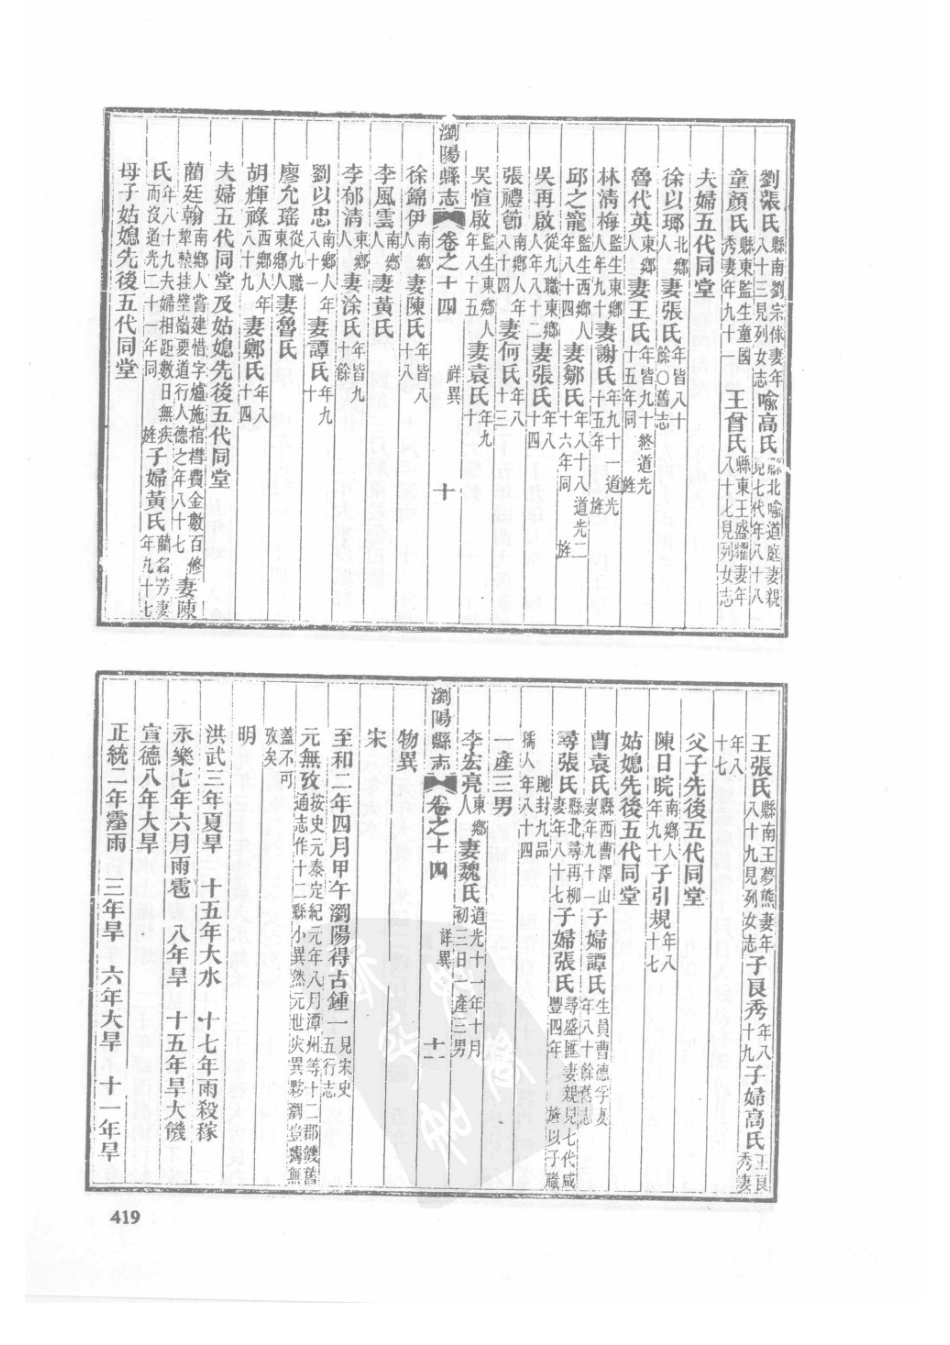 劉張氏縣南劉宗俅妻年八十三見列女志喻高氏縣北喻道庭妻親見七代年八十八
童顏氏縣東監生童國秀妻年九十一王曾氏縣東王盛耀妻年八十七見列女志
夫婦五代同堂
徐以瑯北鄉人妻張氏年皆八十餘〇舊志
魯代英東鄉人妻王氏年皆九十終道光十五年同旌
林清梅監生東鄉人年九十妻謝氏年九十一道光十五年旌
邱之寵監生西鄉人年八十四妻鄒氏年八十八道光二十六年同旌
吳再啟從九職東鄉人年八十二妻張氏年八十四
張禮節南鄉人年八十四妻何氏年八十三
吳愃啟監生東鄉人年八十五妻袁氏年九十
瀏陽縣志 卷之十四 祥異 十
徐錦伊南鄉人妻陳氏年皆八十八
李風雲南鄉人妻黃氏
李郁清東鄉人妻涂氏年皆九十餘
劉以忠南鄉人年八十一妻譚氏年九十
廖允瑤從九職東鄉人妻魯氏
胡輝祿西鄉人年八十九妻鄭氏年八十四
夫婦五代同堂及姑媳先後五代同堂
藺廷翰南鄉人嘗建惜字爐施棺槥費金數百修犂轅挂壁嶺要道行人德之年八十七妻陳
氏年八十九夫婦相距數日無疾而沒道光二十一年同旌子婦黃氏藺名芳妻年九十七
母子姑媳先後五代同堂
王張氏縣南王夢熊妻年八十九見列女志子良秀年八十九子婦高氏王良秀妻
年八十七
父子先後五代同堂
陳日晥南鄉人年九十子引規年八十七
姑媳先後五代同堂
曹袁氏縣西曹澤山妻年九十一子婦譚氏生員曹德孚妻年八十餘舊志
尋張氏縣北尋再柳妻年八十七子婦張氏尋盛匯妻親見七代咸豐四年旌以子職
貤封九品孺人年八十四
一產三男
李宏亮東鄉人妻魏氏道光十一年十月初三日一產三男
瀏陽縣志 卷之十四 祥異 十一
物異
宋
至和二年四月甲午瀏陽得古鍾一見宋史五行志
元無攷按史元泰定紀元年八月潭州等十二郡饑舊通志作十二縣小異然元世災異夥瀏豈獨無
蓋不可攷矣
明
洪武三年夏旱 十五年大水 十七年雨殺稼
永樂七年六月雨雹 八年旱 十五年旱大饑
宣德八年大旱
正統二年霪雨 三年旱 六年大旱 十一年旱
419